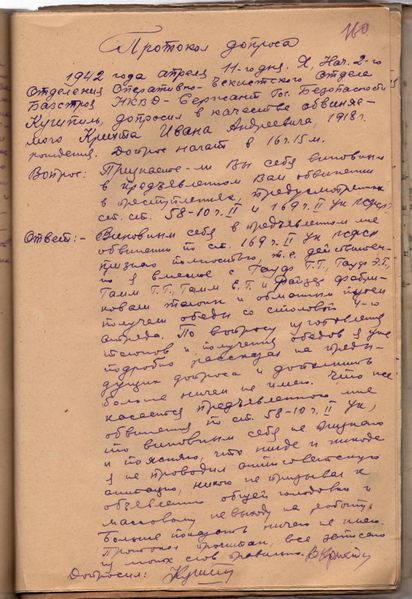 160
Протокол допроса
1942 года апреля 11-го дня. Я, Нач. 2-го
Отделения Оперативно-Чекистского Отдела
Бакалстроя НКВД - Сержант Гос. Безопасности
Кушпиль, допросил в качестве обвиняе-
мого Крихта Ивана Андреевича, 1918 г.
рождения. Допрос начат в 16 г. 15 м.
Вопрос: Признаете-ли Вы себя виновным
в предъявленном Вам обвинении
в преступлениях, предусмотренных
ст. ст. 58-10 ч. II и 169 ч. II УК РСФСР.
Ответ:- Виновным себя в предъявленном мне
обвинении по ст. 169 ч. II УК РСФСР
признаю полностью, т.е. действитель-
но я вместе с Гаур Г.Г., Гаур Э.Г.,
Тамм Г.Г., Тамм Е.Г. и фабри-
ковали талоны и обманным путем
получали обеды из столовой 4-го
отряда. По вопросу изготовления
талонов и получения обедов я уже
подробно рассказал на преды-
дущих допросах и дополнить
больше ничем не имею. Что же
касается предъявленного мне
обвинения по ст. 58-10 ч. II УК,
то виновным себя не признаю
и поясняю, что нигде и никогда
я не проводил антисоветскую
агитацию, никого не призывал к
объявлению общей голодовки и
массовому невыходу на работу.
Больше показать ничего не имею.
Протокол прочитан, все записано
из моих слов правильно.
Допросил: